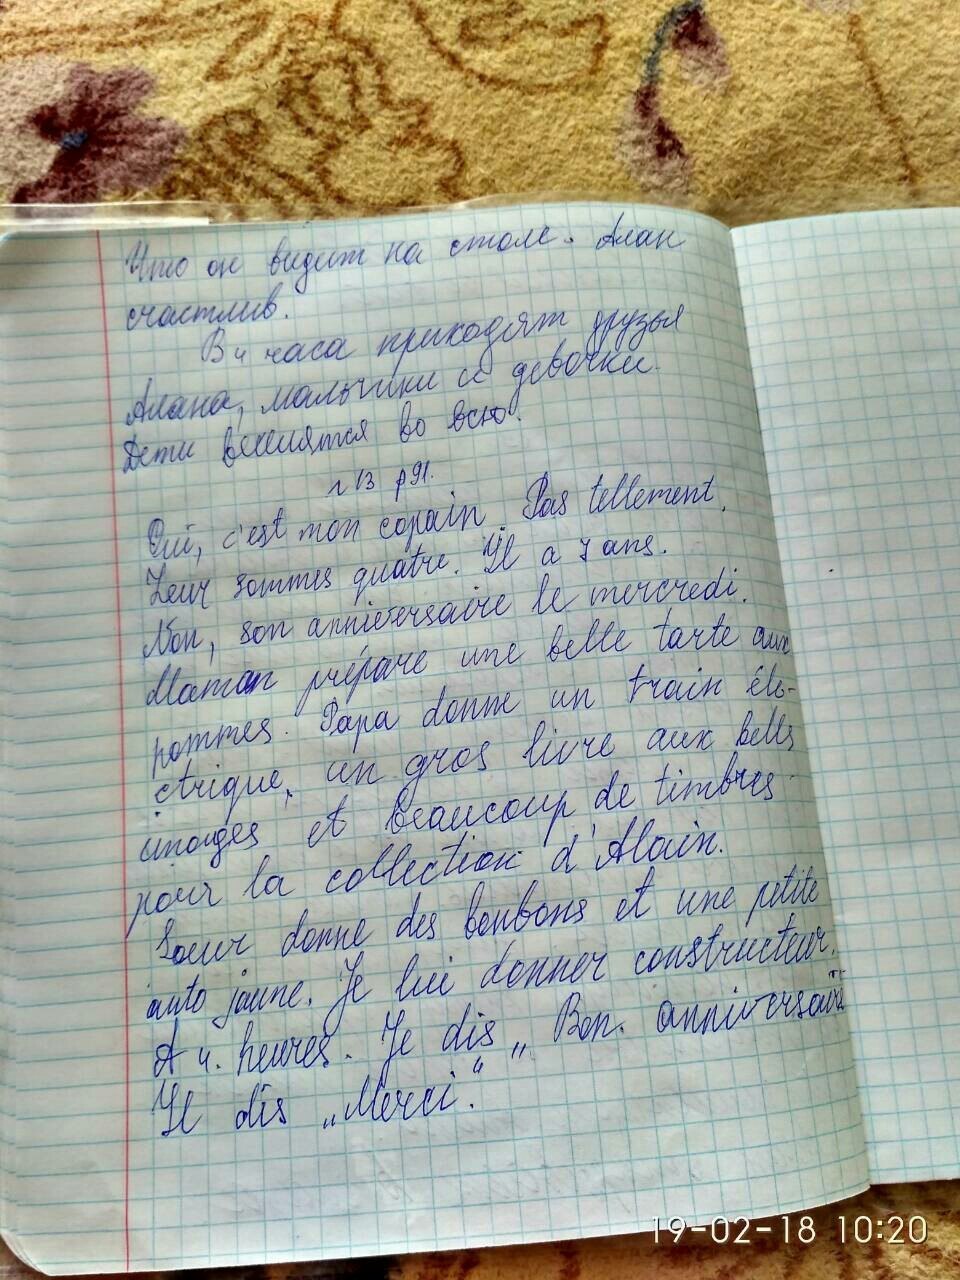 Что он видит на столе. Алан
счастлив.
В 4 часа приходят друзья
Алана, мальчики и девочки.
Дети веселятся во всю.
n 13 p 91.
Oui, c'est mon copain. Pas tellement.
Leur sommes quatre. Il a 7 ans.
Non, son anniversaire le mercredi.
Maman prépare une belle tarte aux
pommes. Papa donne un train éle-
ctrique, un gros livre aux bells
images et beaucoup de timbres
pour la collection d'Alain.
Soeur donne des bonbons et une petite
auto jaune. Je lui donner constructeur.
A 4. heures. Je dis „Bon. anniversaire
Il dis „Merci."
19-02-18 10:20